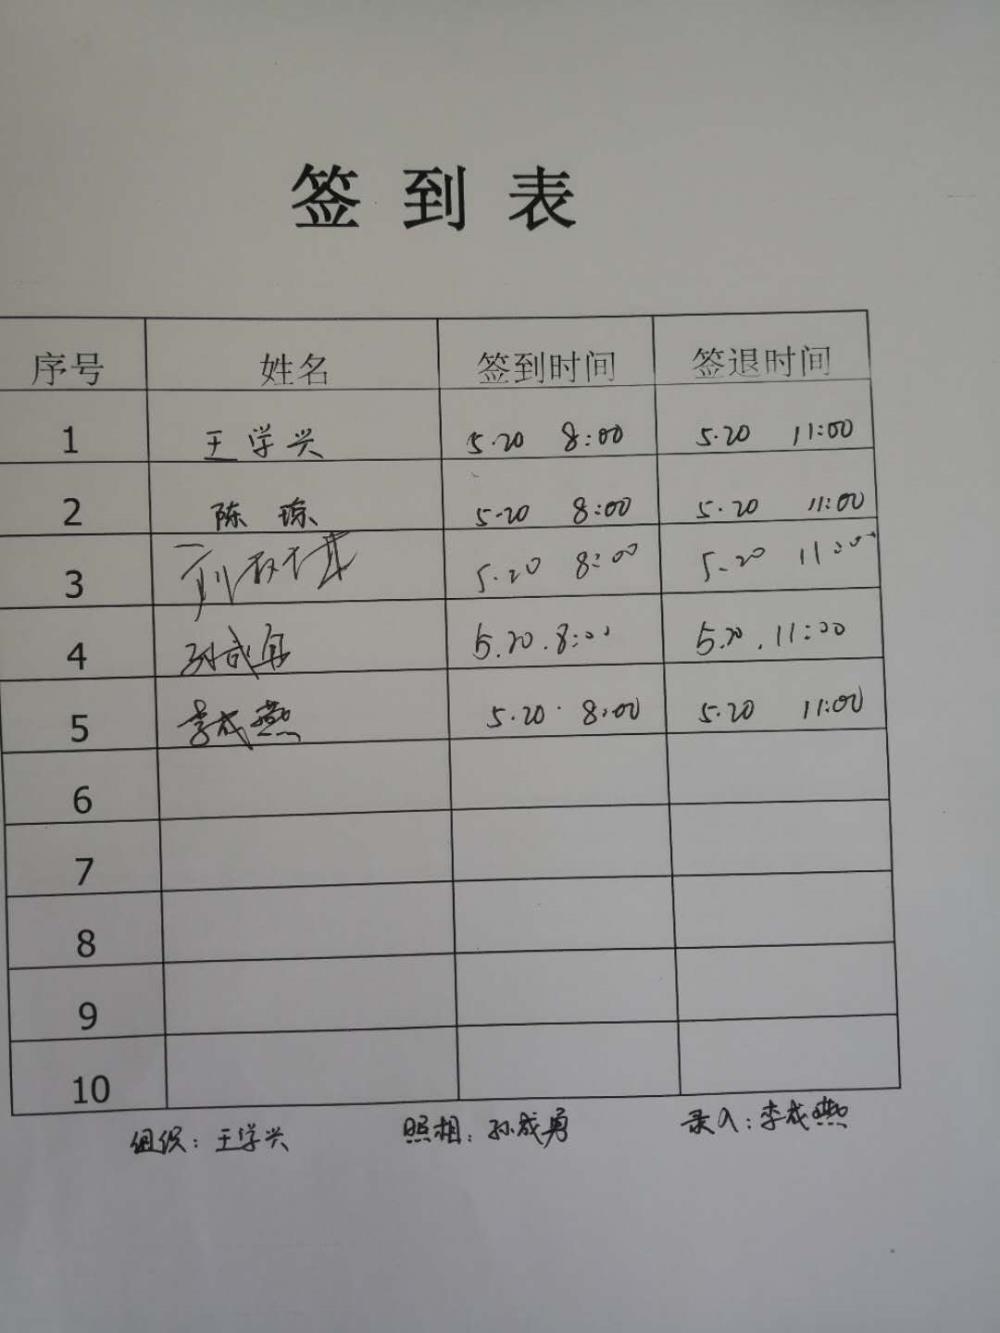 签到表
序号 姓名 签到时间 签退时间
1 王学兴 5.20 8:00 5.20 11:00
2 陈琼 5.20 8:00 5.20 11:00
3 刘 5.20 8:00 5.20 11:00
4 孙成勇 5.20.8:00 5.20.11:00
5 李成燕 5.20 8:00 5.20 11:00
6
7
8
9
10
组织:王学兴 照相:孙成勇 录入:李成燕